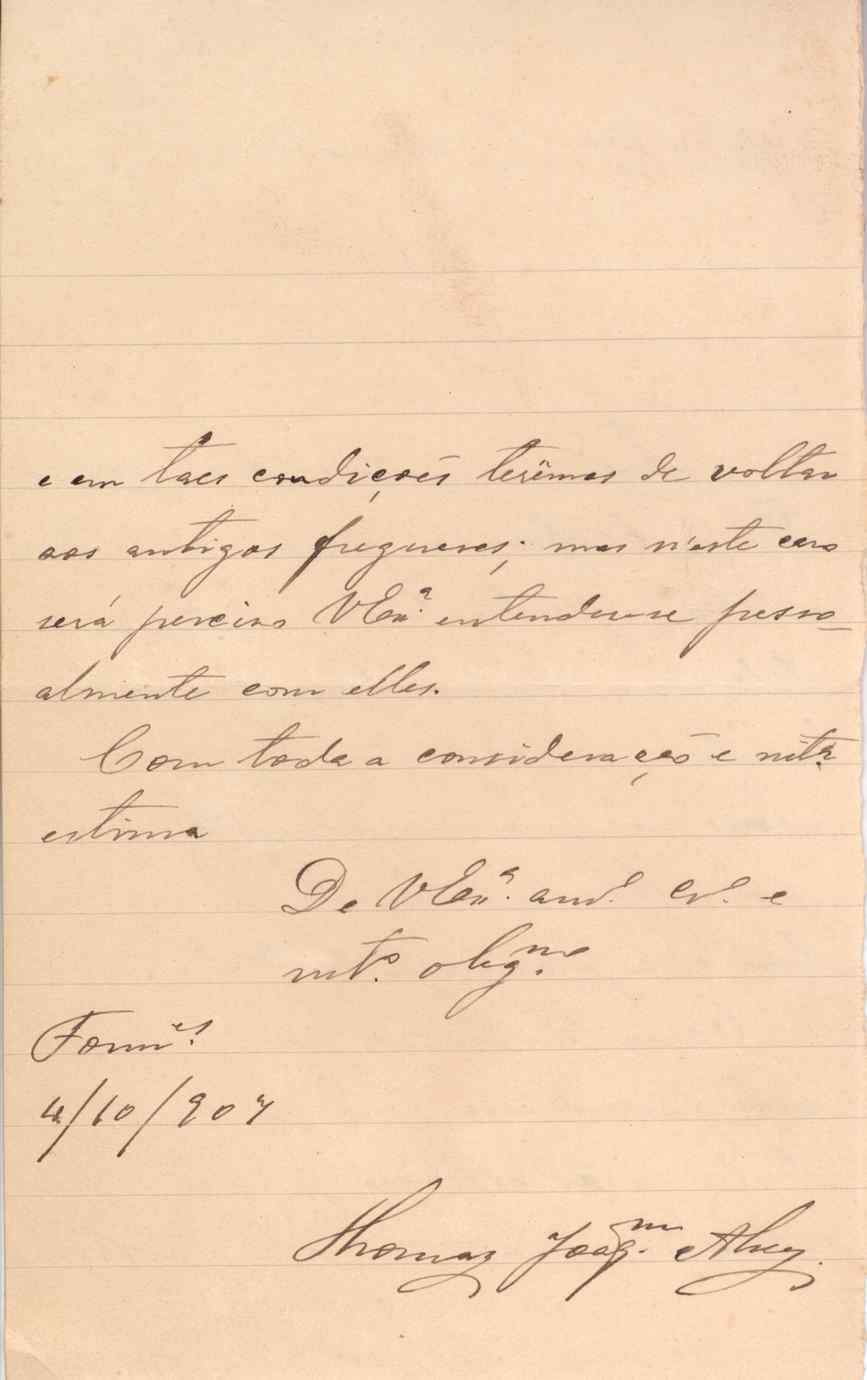 e em taes condições terêmos de voltar
aos antigos freguezes; mas n'este caso
será preciso VExª. entender-se pesso-
almente com elles.
Com toda a consideração e mtª.
estima
De VExª. amº. crº. e
mtº. obgmo.
4/10/907
Thomaz Joaqm. Alvez.